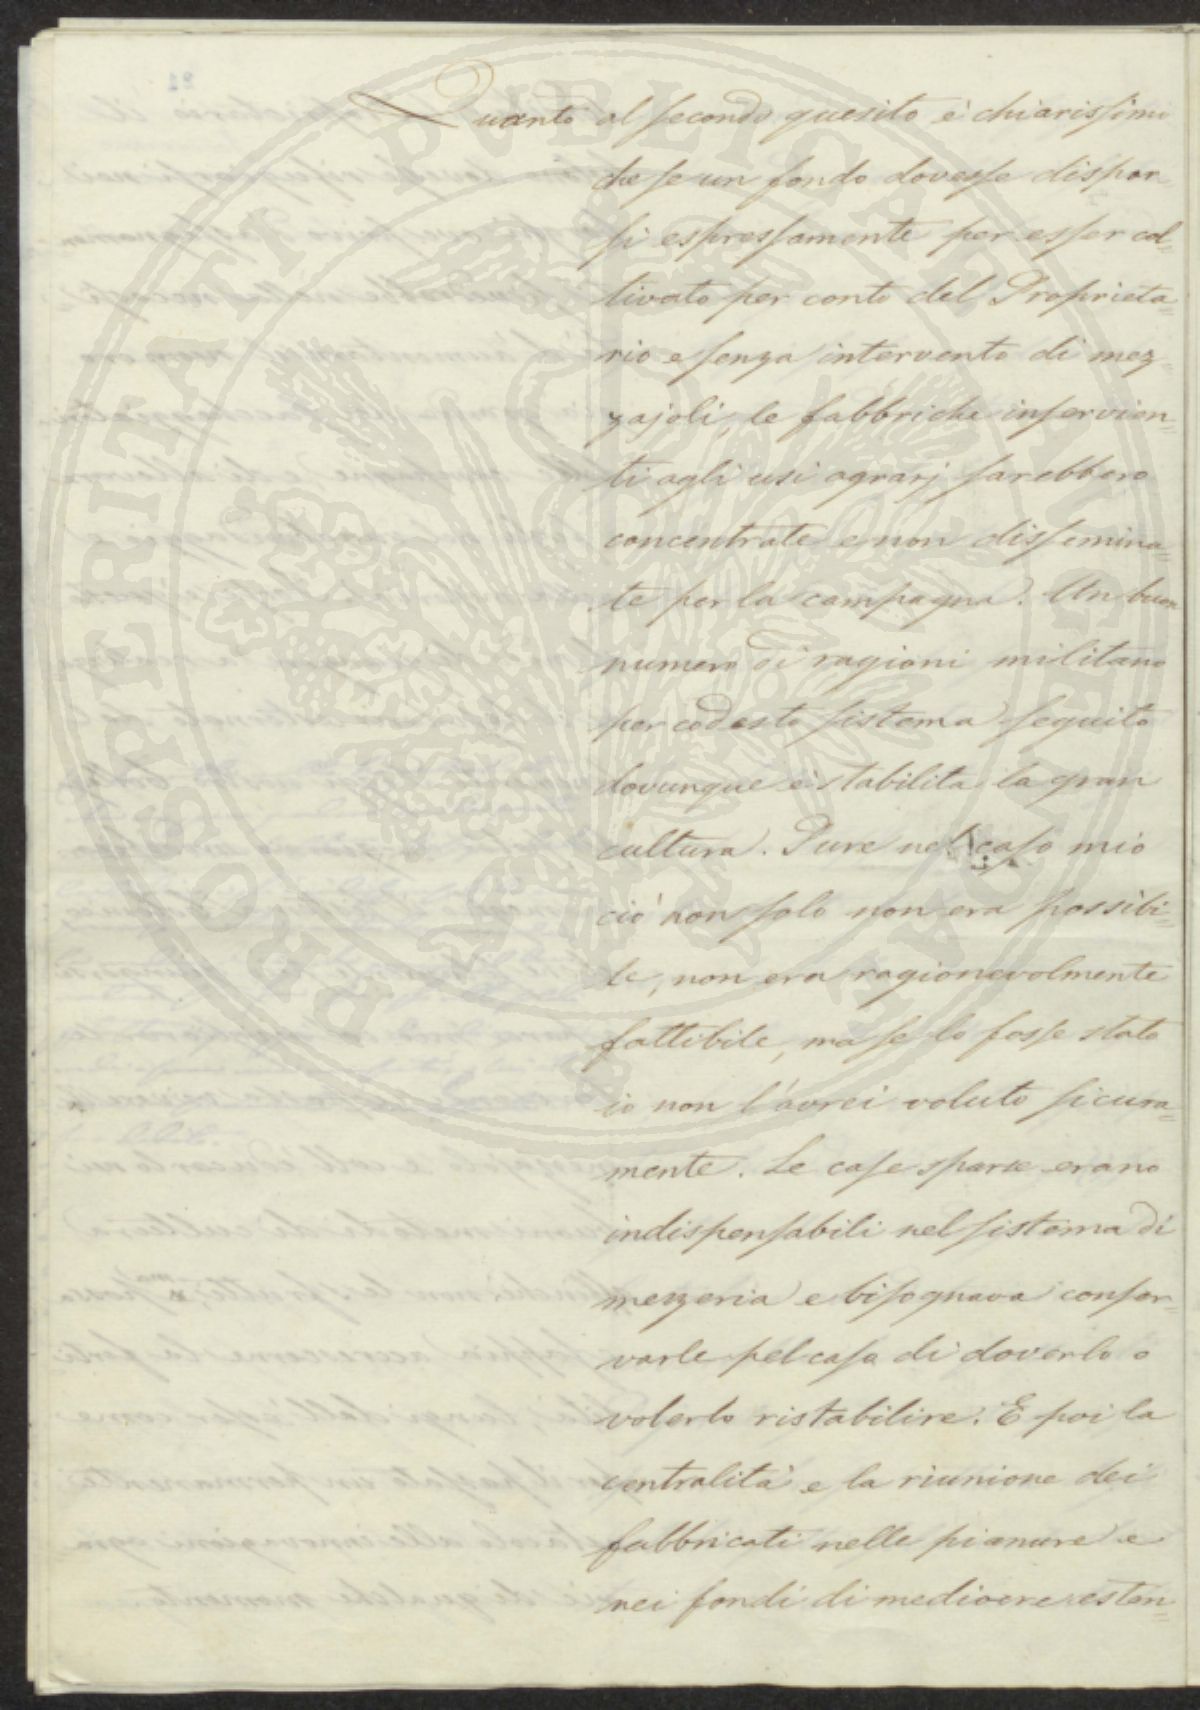 Quanto al secondo quesito è chiarissimo
che se un fondo dovesse dispor-
si espressamente per esser col=
tivato per conto del Proprieta=
rio e senza intervento di mez=
zajoli, le fabbriche inservien=
ti agli usi agrarj sarebbero
concentrate e non dissemina=
te per la campagna. Un buon
numero di ragioni militano
per codesto sistema seguito
dovunque è stabilita la gran
cultura. Pure nel caso mio
ciò non solo non era possibi=
le, non era ragionevolmente
fattibile, ma se lo fosse stato
io non l'avrei voluto sicura=
mente. Le case sparse erano
indispensabili nel sistema di
mezzeria e bisognava conser=
varle pel caso di doverlo o
volerlo ristabilire. E poi la
centralità e la riunione dei
fabbricati nelle pianure e
nei fondi di mediocre esten=
PROSPERITATI PUBLICAE AUGENDAE